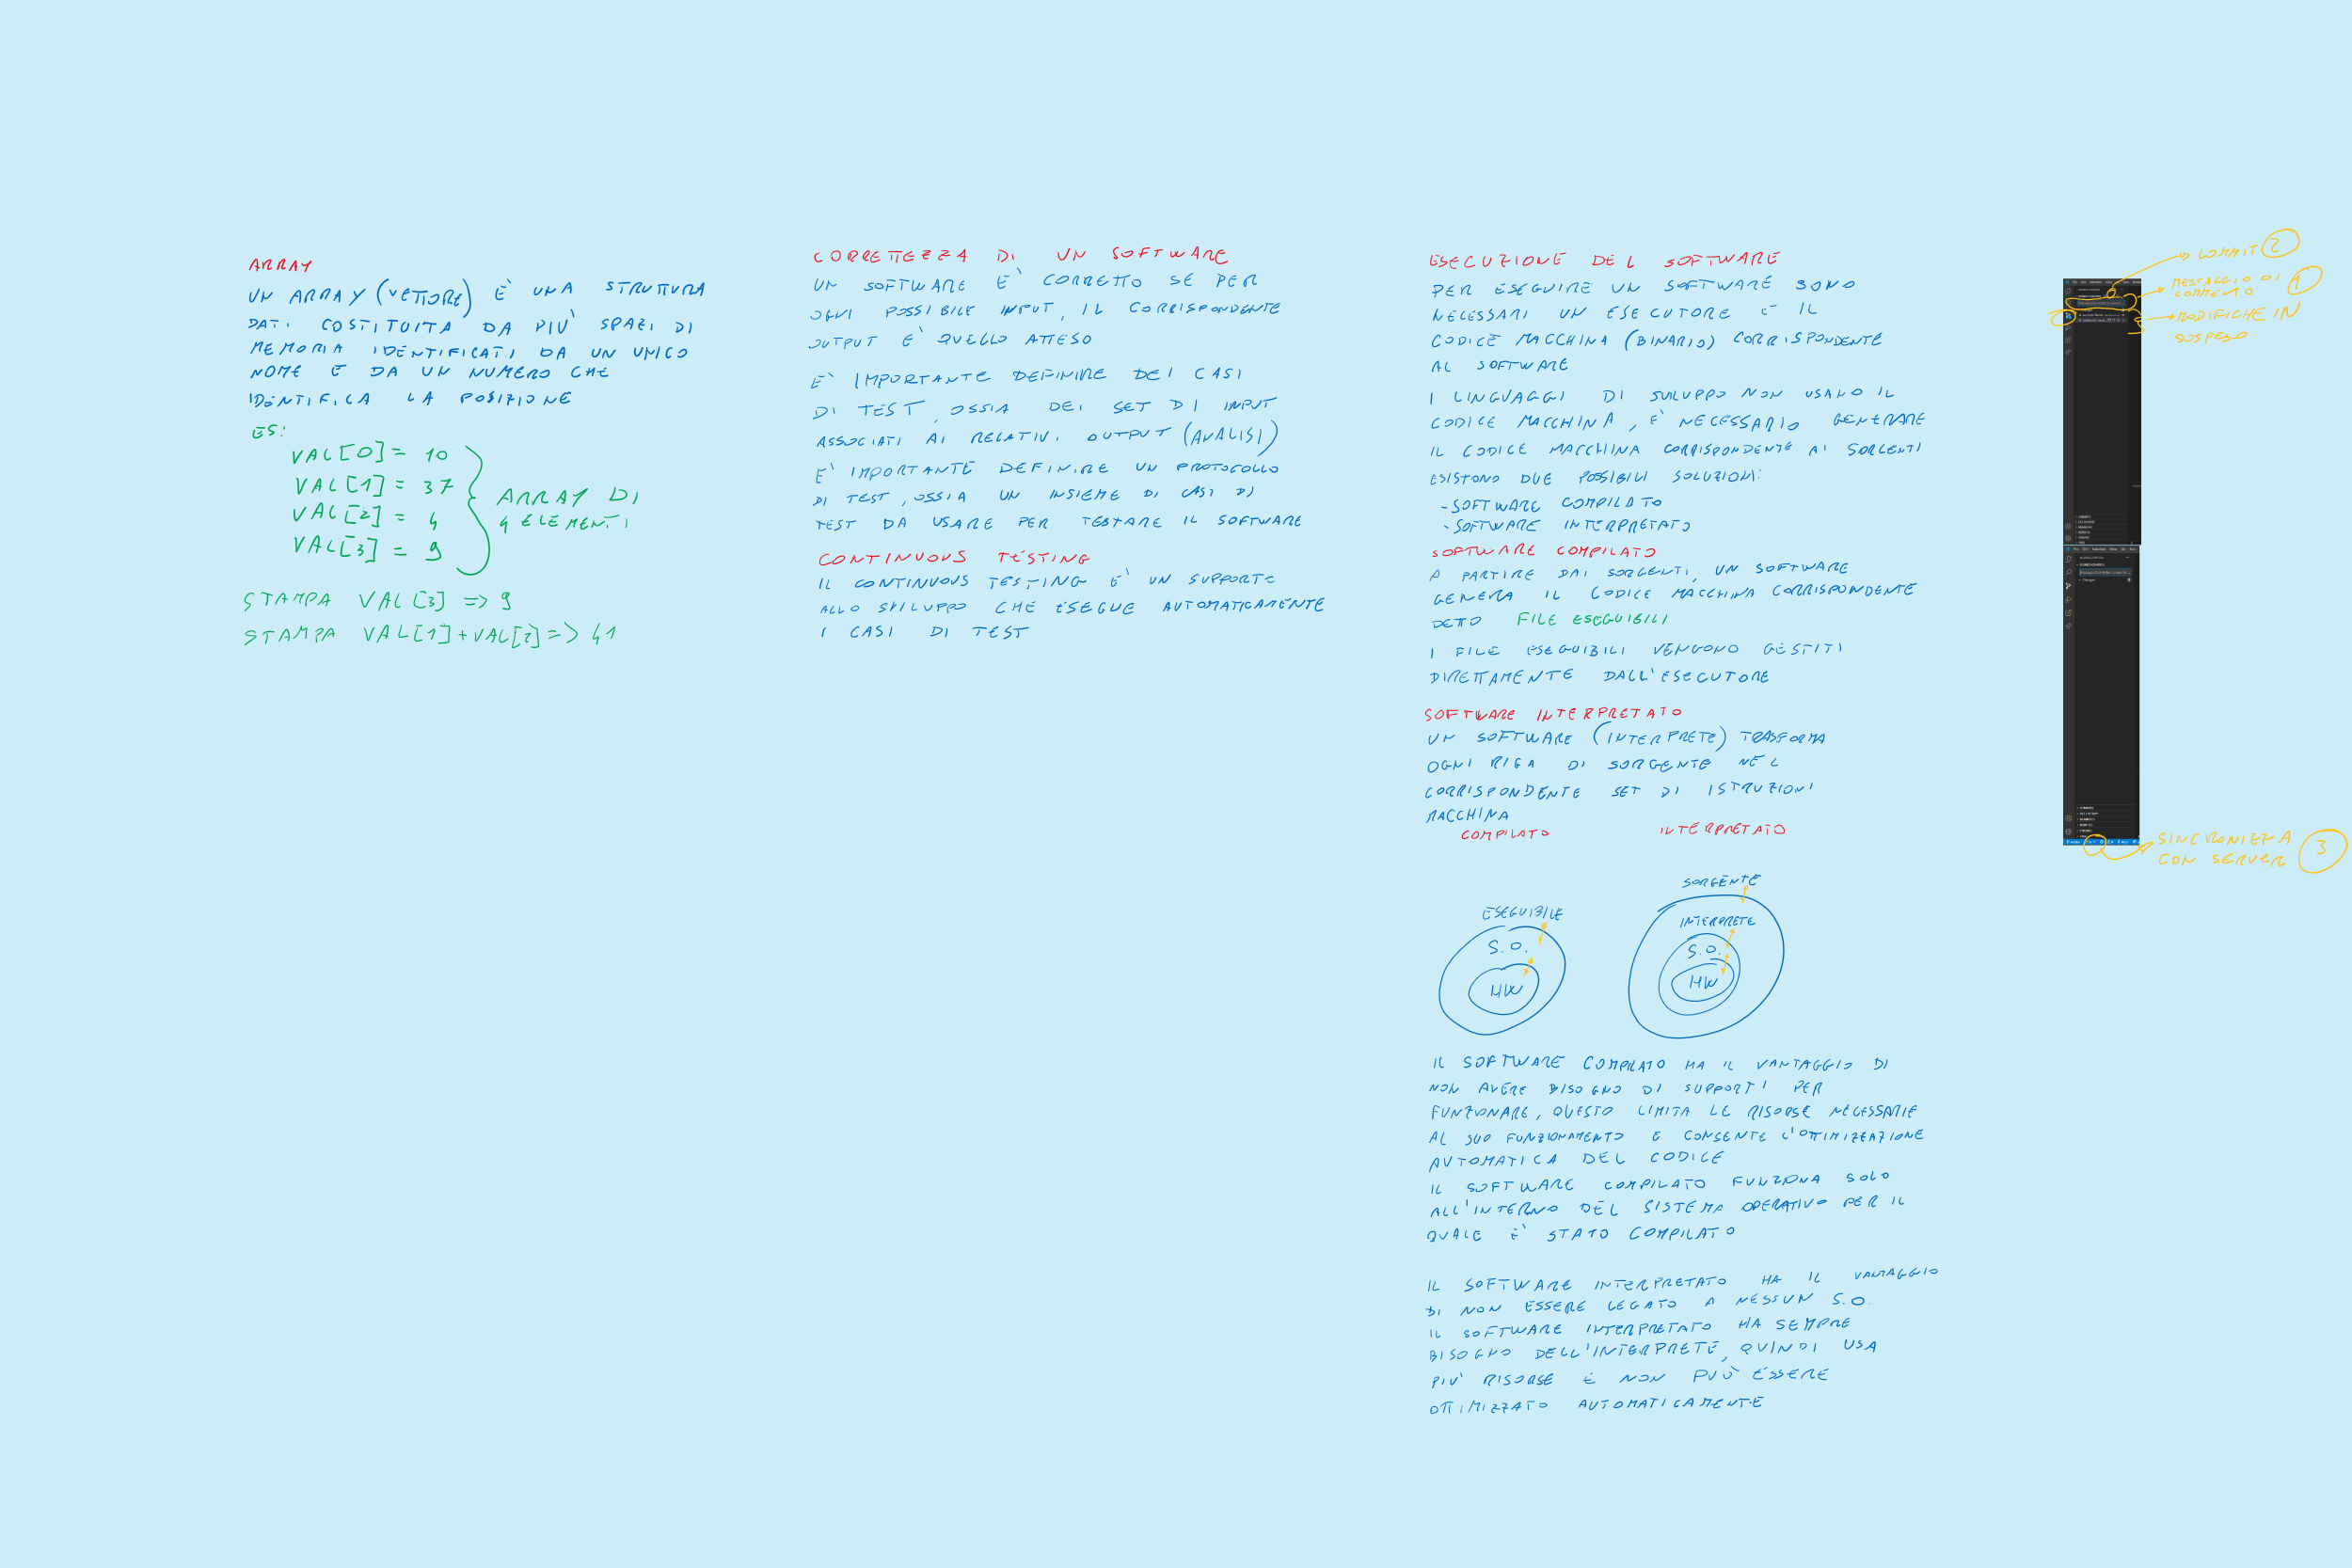 ARRAY
UN ARRAY (VETTORE) È UNA STRUTTURA
DATI COSTITUITA DA PIÙ SPAZI DI
MEMORIA IDENTIFICATI DA UN UNICO
NOME E DA UN NUMERO CHE
IDENTIFICA LA POSIZIONE
ES:
VAL[0] = 10
VAL[1] = 37
VAL[2] = 4
VAL[3] = 9
ARRAY DI
4 ELEMENTI
STAMPA VAL[3] => 9
STAMPA VAL[1]+VAL[2] => 41
CORRETTEZZA DI UN SOFTWARE
UN SOFTWARE E' CORRETTO SE PER
OGNI POSSIBILE INPUT, IL CORRISPONDENTE
OUTPUT È QUELLO ATTESO
E' IMPORTANTE DEFINIRE DEI CASI
DI TEST, OSSIA DEI SET DI INPUT
ASSOCIATI AI RELATIVI OUTPUT (ANALISI)
E' IMPORTANTE DEFINIRE UN PROTOCOLLO
DI TEST, OSSIA UN INSIEME DI CASI DI
TEST DA USARE PER TESTARE IL SOFTWARE
CONTINUOUS TESTING
IL CONTINUOUS TESTING E' UN SUPPORTO
ALLO SVILUPPO CHE ESEGUE AUTOMATICAMENTE
I CASI DI TEST
ESECUZIONE DEL SOFTWARE
PER ESEGUIRE UN SOFTWARE SONO
NECESSARI UN ESECUTORE E IL
CODICE MACCHINA (BINARIO) CORRISPONDENTE
AL SOFTWARE
I LINGUAGGI DI SVILUPPO NON USANO IL
CODICE MACCHINA, È NECESSARIO GENERARE
IL CODICE MACCHINA CORRISPONDENTE AI SORGENTI
ESISTONO DUE POSSIBILI SOLUZIONI:
- SOFTWARE COMPILATO
- SOFTWARE INTERPRETATO
SOFTWARE COMPILATO
A PARTIRE DAI SORGENTI, UN SOFTWARE
GENERA IL CODICE MACCHINA CORRISPONDENTE
DETTO FILE ESEGUIBILI
I FILE ESEGUIBILI VENGONO GESTITI
DIRETTAMENTE DALL'ESECUTORE
SOFTWARE INTERPRETATO
UN SOFTWARE (INTERPRETE) TRASFORMA
OGNI RIGA DI SORGENTE NEL
CORRISPONDENTE SET DI ISTRUZIONI
MACCHINA
COMPILATO INTERPRETATO
ESEGUIBILE
S.O.
HW
SORGENTE
INTERPRETE
S.O.
HW
IL SOFTWARE COMPILATO HA IL VANTAGGIO DI
NON AVERE BISOGNO DI SUPPORTI PER
FUNZIONARE, QUESTO LIMITA LE RISORSE NECESSARIE
AL SUO FUNZIONAMENTO E CONSENTE L'OTTIMIZZAZIONE
AUTOMATICA DEL CODICE
IL SOFTWARE COMPILATO FUNZIONA SOLO
ALL'INTERNO DEL SISTEMA OPERATIVO PER IL
QUALE È STATO COMPILATO
IL SOFTWARE INTERPRETATO HA IL VANTAGGIO
DI NON ESSERE LEGATO A NESSUN S.O.
IL SOFTWARE INTERPRETATO HA SEMPRE
BISOGNO DELL'INTERPRETE, QUINDI USA
PIÙ RISORSE E NON PUÒ ESSERE
OTTIMIZZATO AUTOMATICAMENTE
COMMIT 2
MESSAGGIO DI
COMMENTO 1
MODIFICHE IN
SOSPESO
SINCRONIZZA
CON SERVER 3